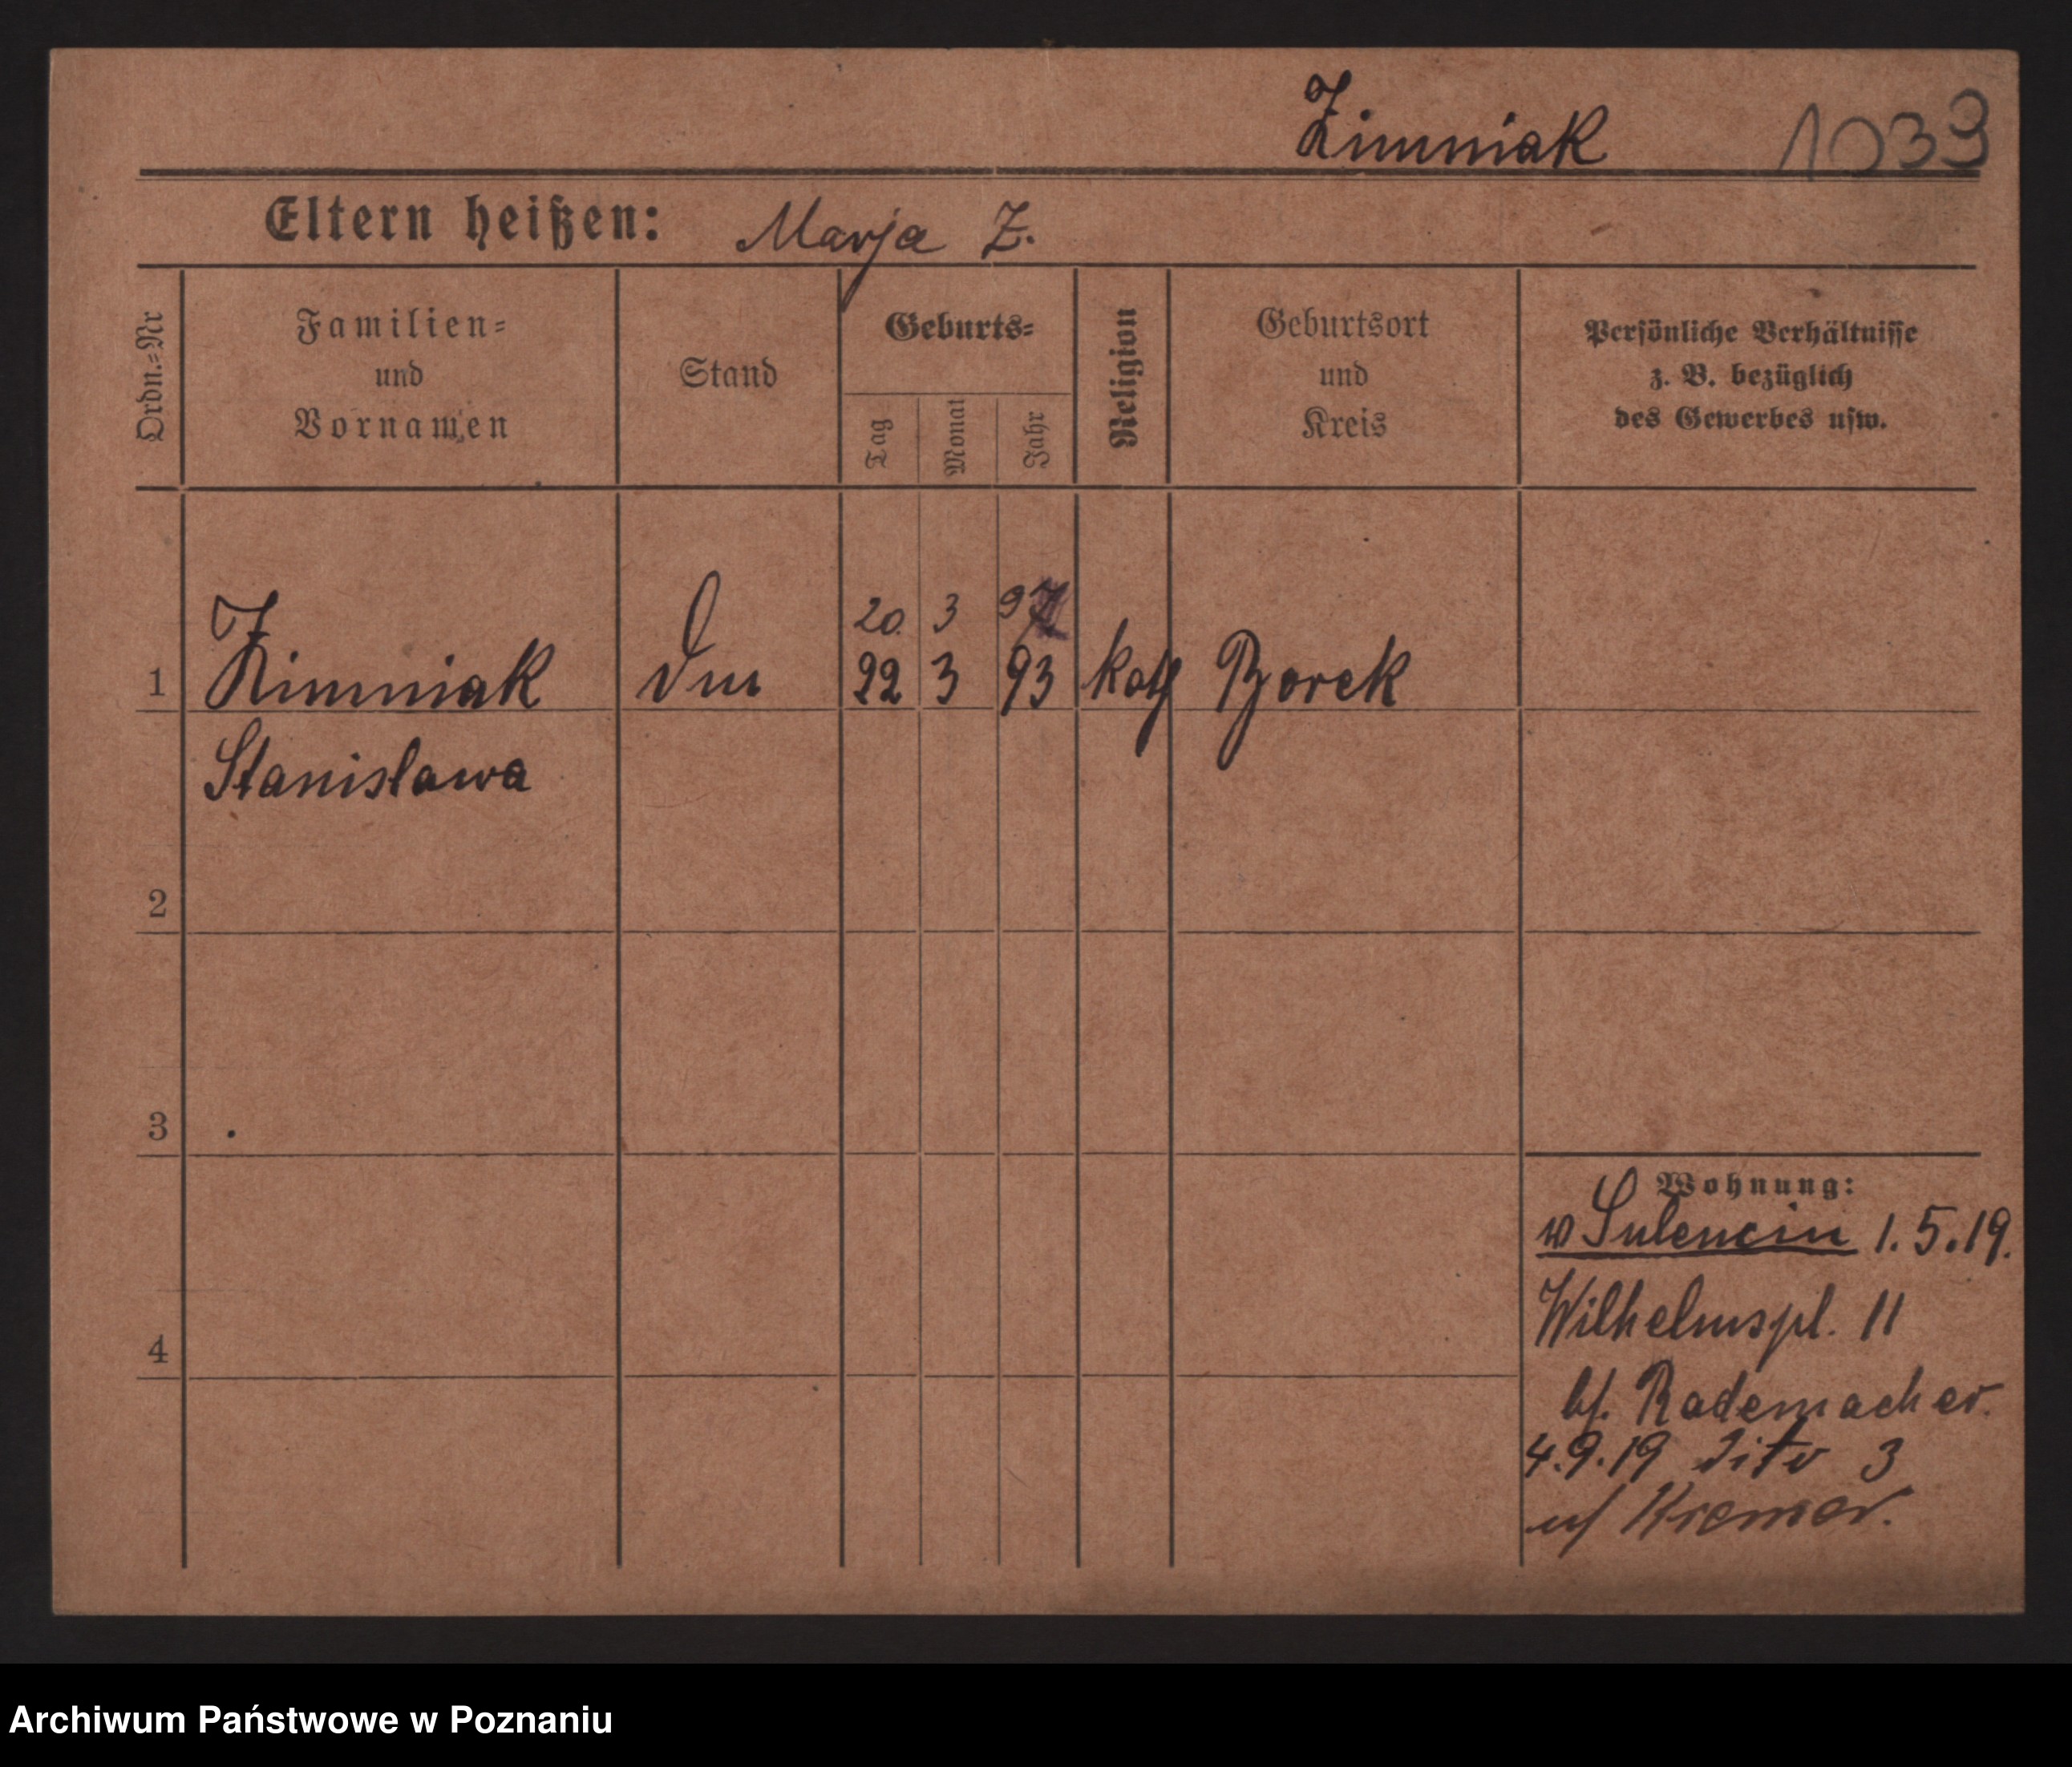 Zimniak 1033
Eltern heißen: Marja Z.
Ordn.=Nr
Familien=
und
Vornamen
Stand
Geburts=
Tag
Monat
Jahr
Religion
Geburtsort
und
Kreis
Persönliche Verhältnisse
z. B. bezüglich
des Gewerbes usw.
20. 3 97
1 Zimniak 22 3 93 kath Borek
Stanisława
2
3
4
Wohnung:
w Sulencin 1.5.19.
Wilhelmspl. 11
bf. Rademacher.
4.9.19 dito 3
Kremer.
Archiwum Państwowe w Poznaniu